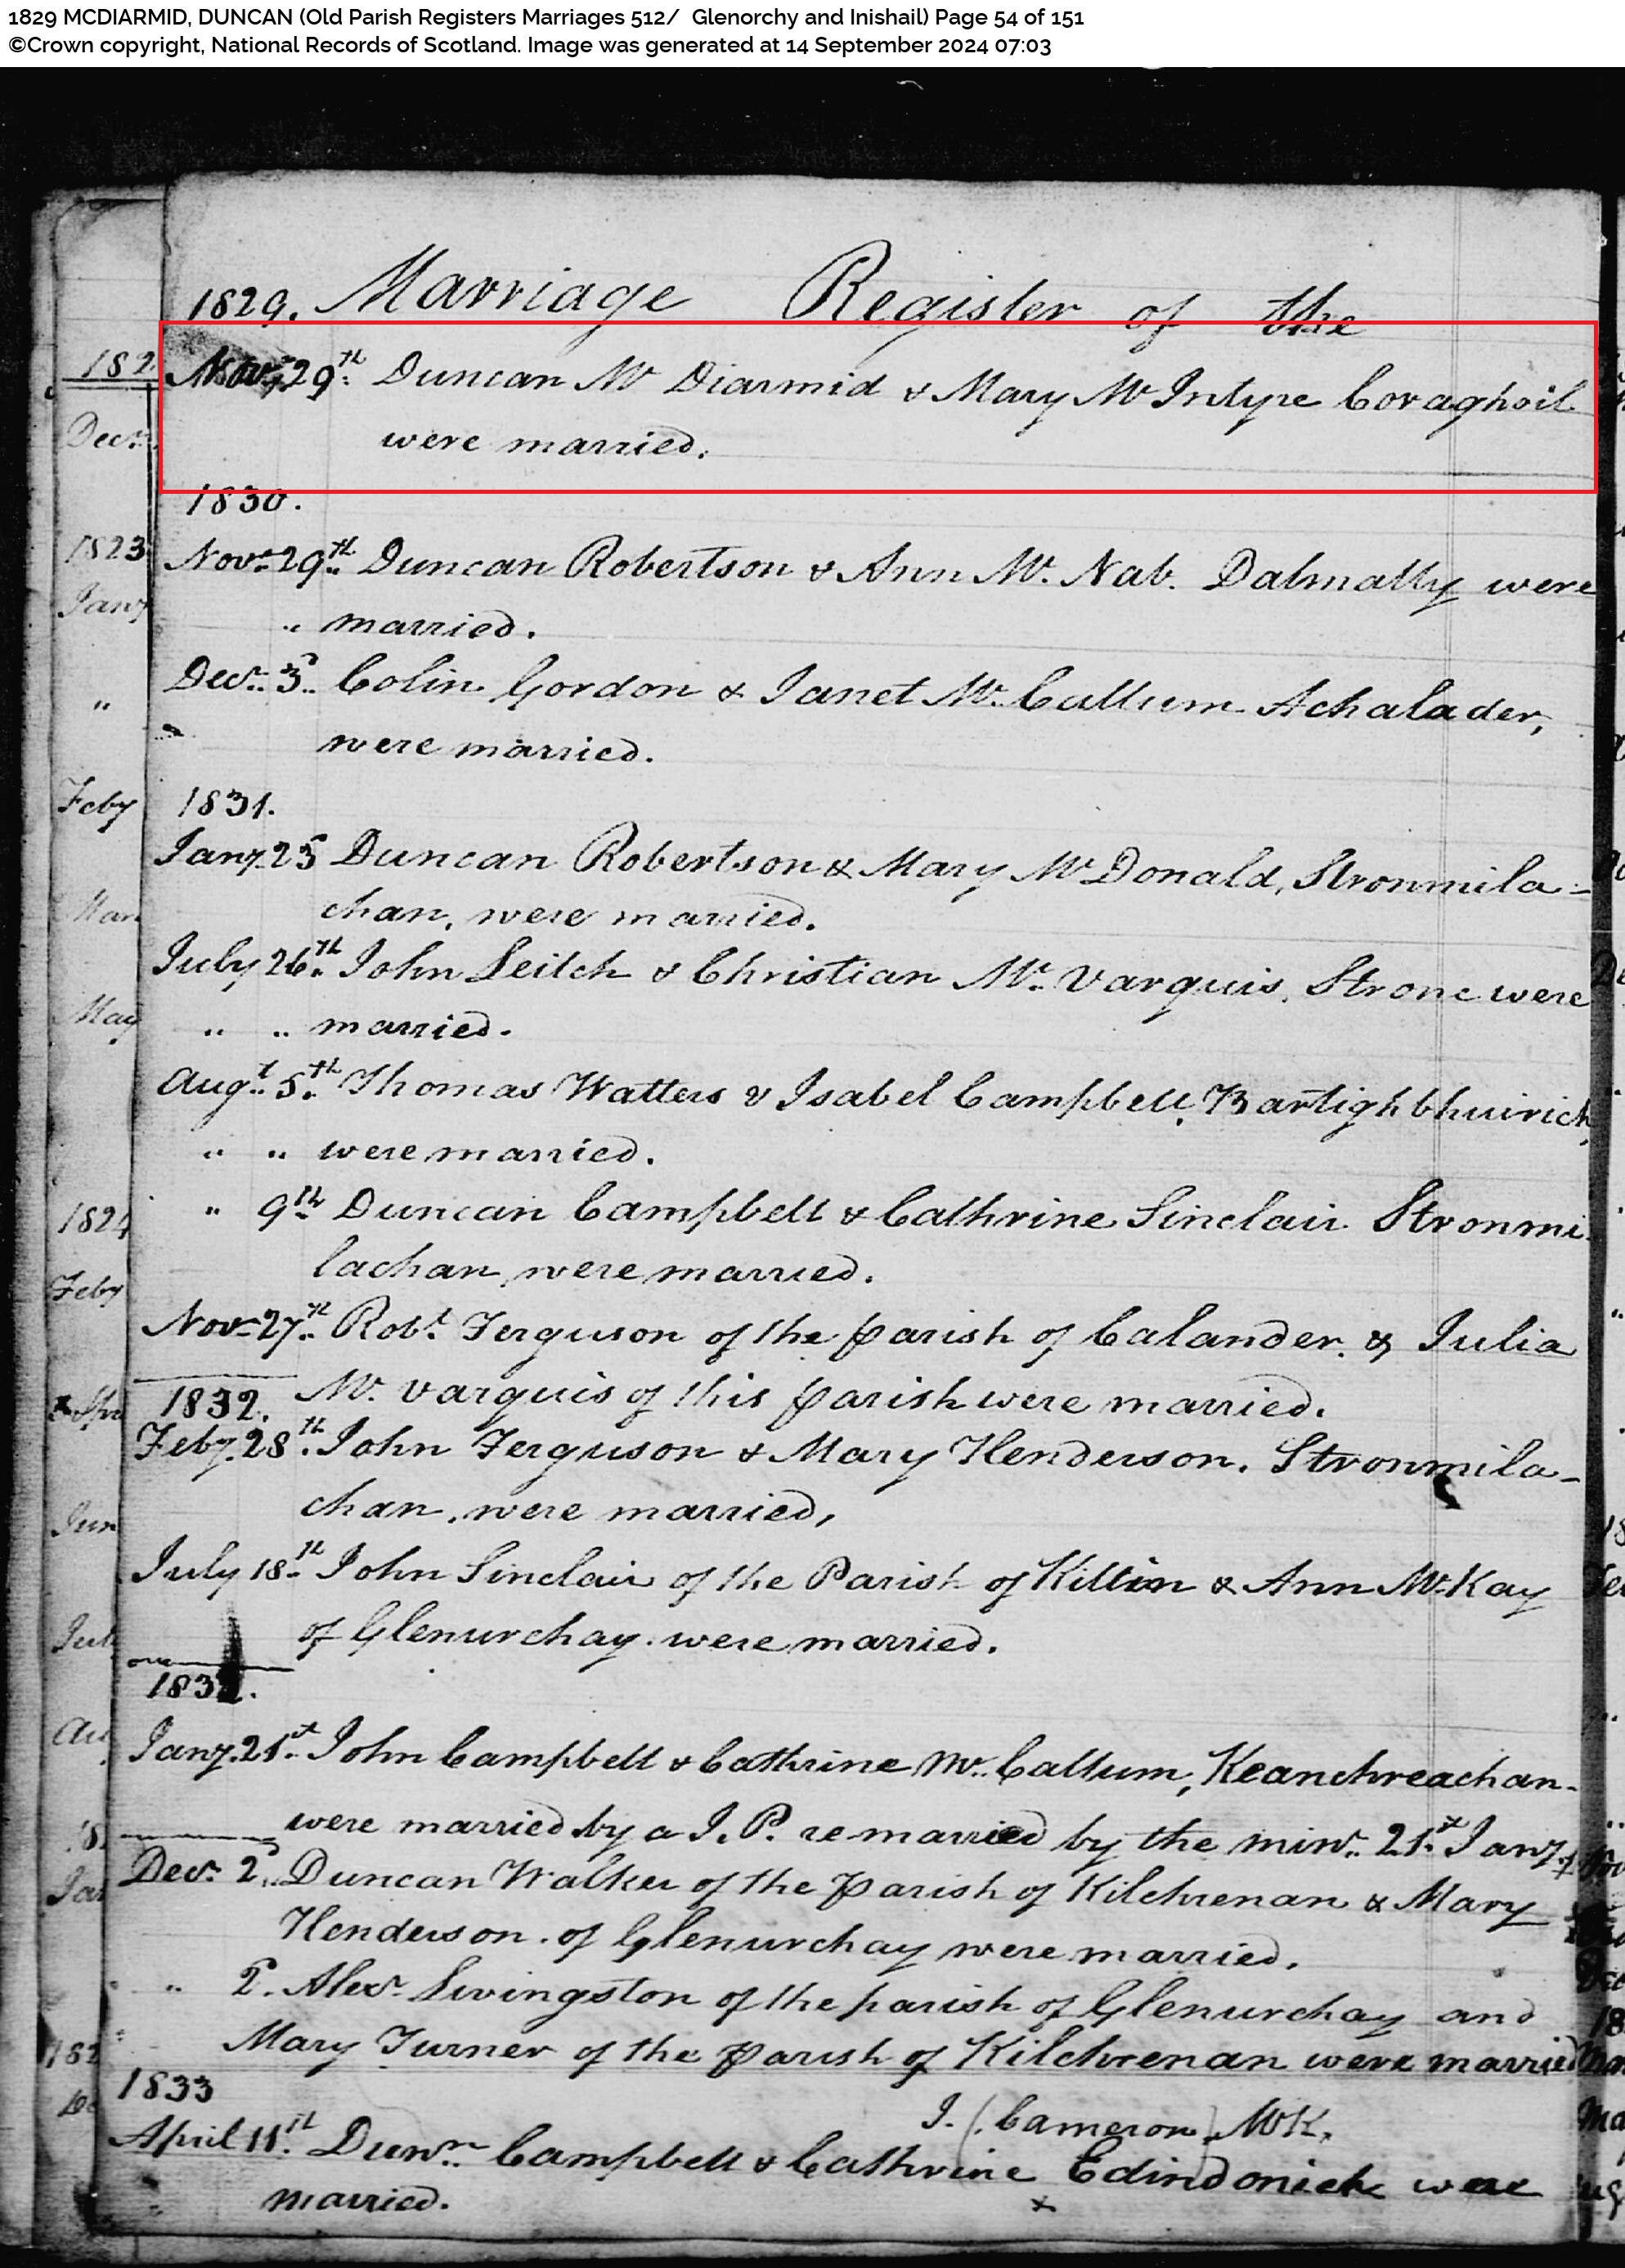 1829 MCDIARMID, DUNCAN (Old Parish Registers Marriages 512/ Glenorchy and Inishail) Page 54 of 151
©Crown copyright, National Records of Scotland. Image was generated at 14 September 2024 07:03
1829. Marriage Register of the
Novr. 29th. Duncan Mc Diarmid & Mary McIntyre Coraghoil
were married.
1830.
Novr. 29th. Duncan Robertson & Ann Mc. Nab. Dalmally were
.. married.
Decr. 3. Colin Gordon & Janet Mc. Callum Achalader,
were married.
1831.
Jany. 25 Duncan Robertson & Mary McDonald, Stronmila-
chan, were married.
July 26th. John Leitch & Christian Mc. Varquis, Strone were
.. .. married.
Augt. 5th. Thomas Watters & Isabel Campbell, Bartighbhuirich,
.. .. were married.
.. 9th. Duncan Campbell & Cathrine Sinclair Stronmi
lachan, were married.
Novr. 27th. Robt. Ferguson of the parish of Calander. & Julia
Mc. Varquis of this parish were married.
1832.
Feby. 28th. John Ferguson & Mary Henderson. Stronmila-
chan, were married,
July 18th. John Sinclair of the Parish of Killin & Ann Mc.Kay
of Glenurchay. were married.
Jany. 21st. John Campbell & Cathrine Mc. Callum, Keanchreachan-
were married by a J.P. remarried by the minr. 21st. Jany.
Decr. 2. Duncan Walker of the Parish of Kilchrenan & Mary
Henderson. of Glenurchay were married.
.. 2. Alexr. Livingston of the parish of Glenurchay and
Mary Turner of the Parish of Kilchrenan were married
1833
J. (Cameron) McK.
April 11th. Duncn. Campbell & Cathrine Edindonich were
married. x
182
Decr.
1823
Jany
..
Feby
Mar
May
1824
Feby
Jun